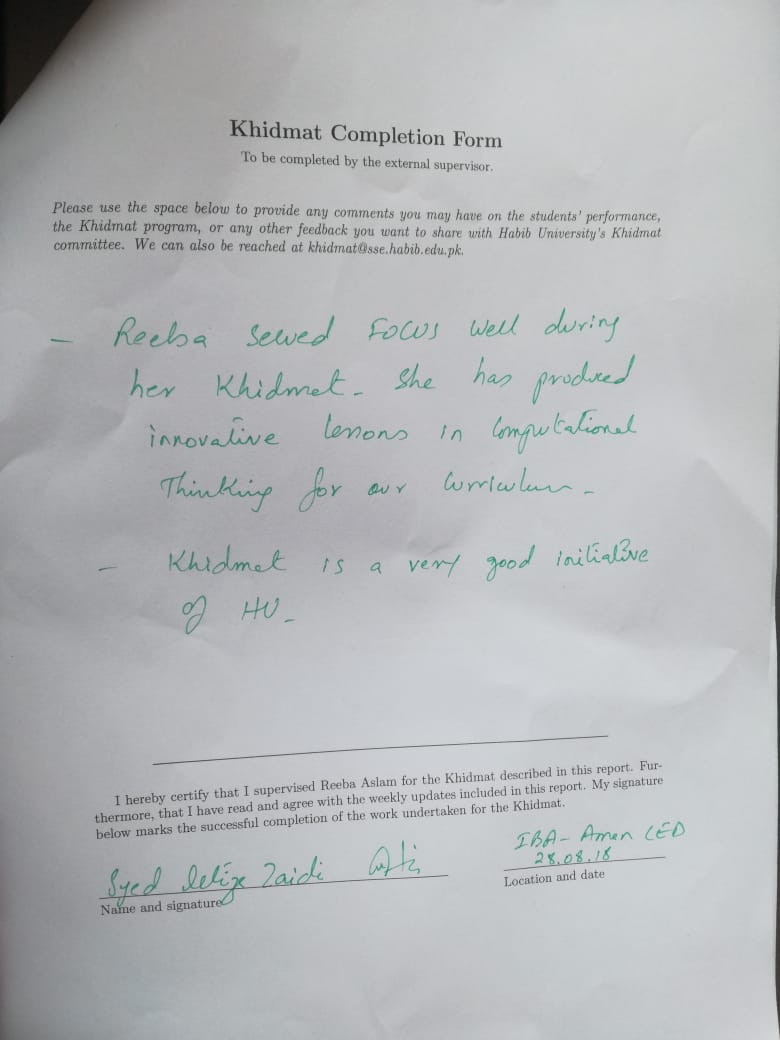 Khidmat Completion Form
To be completed by the external supervisor.
Please use the space below to provide any comments you may have on the students' performance,
the Khidmat program, or any other feedback you want to share with Habib University's Khidmat
committee. We can also be reached at khidmat@sse.habib.edu.pk.
- Reeba served FOCUS well during
her Khidmet. She has produced
innovative lessons in Computational
Thinking for our Curriculum.
- Khidmet is a very good initiative
of HU.
I hereby certify that I supervised Reeba Aslam for the Khidmat described in this report. Fur-
thermore, that I have read and agree with the weekly updates included in this report. My signature
below marks the successful completion of the work undertaken for the Khidmat.
Syed Zaidi
Name and signature
IBA- Aman CED
28.08.18
Location and date